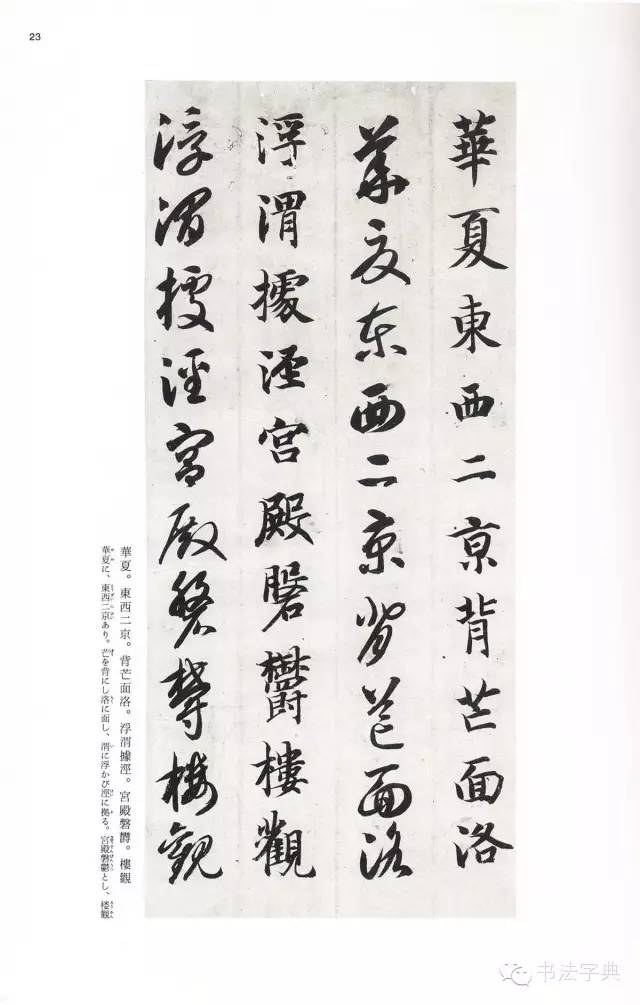 23
華夏東西二京背芒面洛
華夏東西二京背芒面洛
浮渭據涇宮殿磐欝樓觀
浮渭據涇宮殿磐欝樓觀
華夏。東西二京。背芒面洛。浮渭據涇。宮殿磐欝。樓觀
華夏に、東西二京あり。芒を背にし洛に面し、渭に浮かび涇に拠る。宮殿磐鬱とし、楼観
书法字典